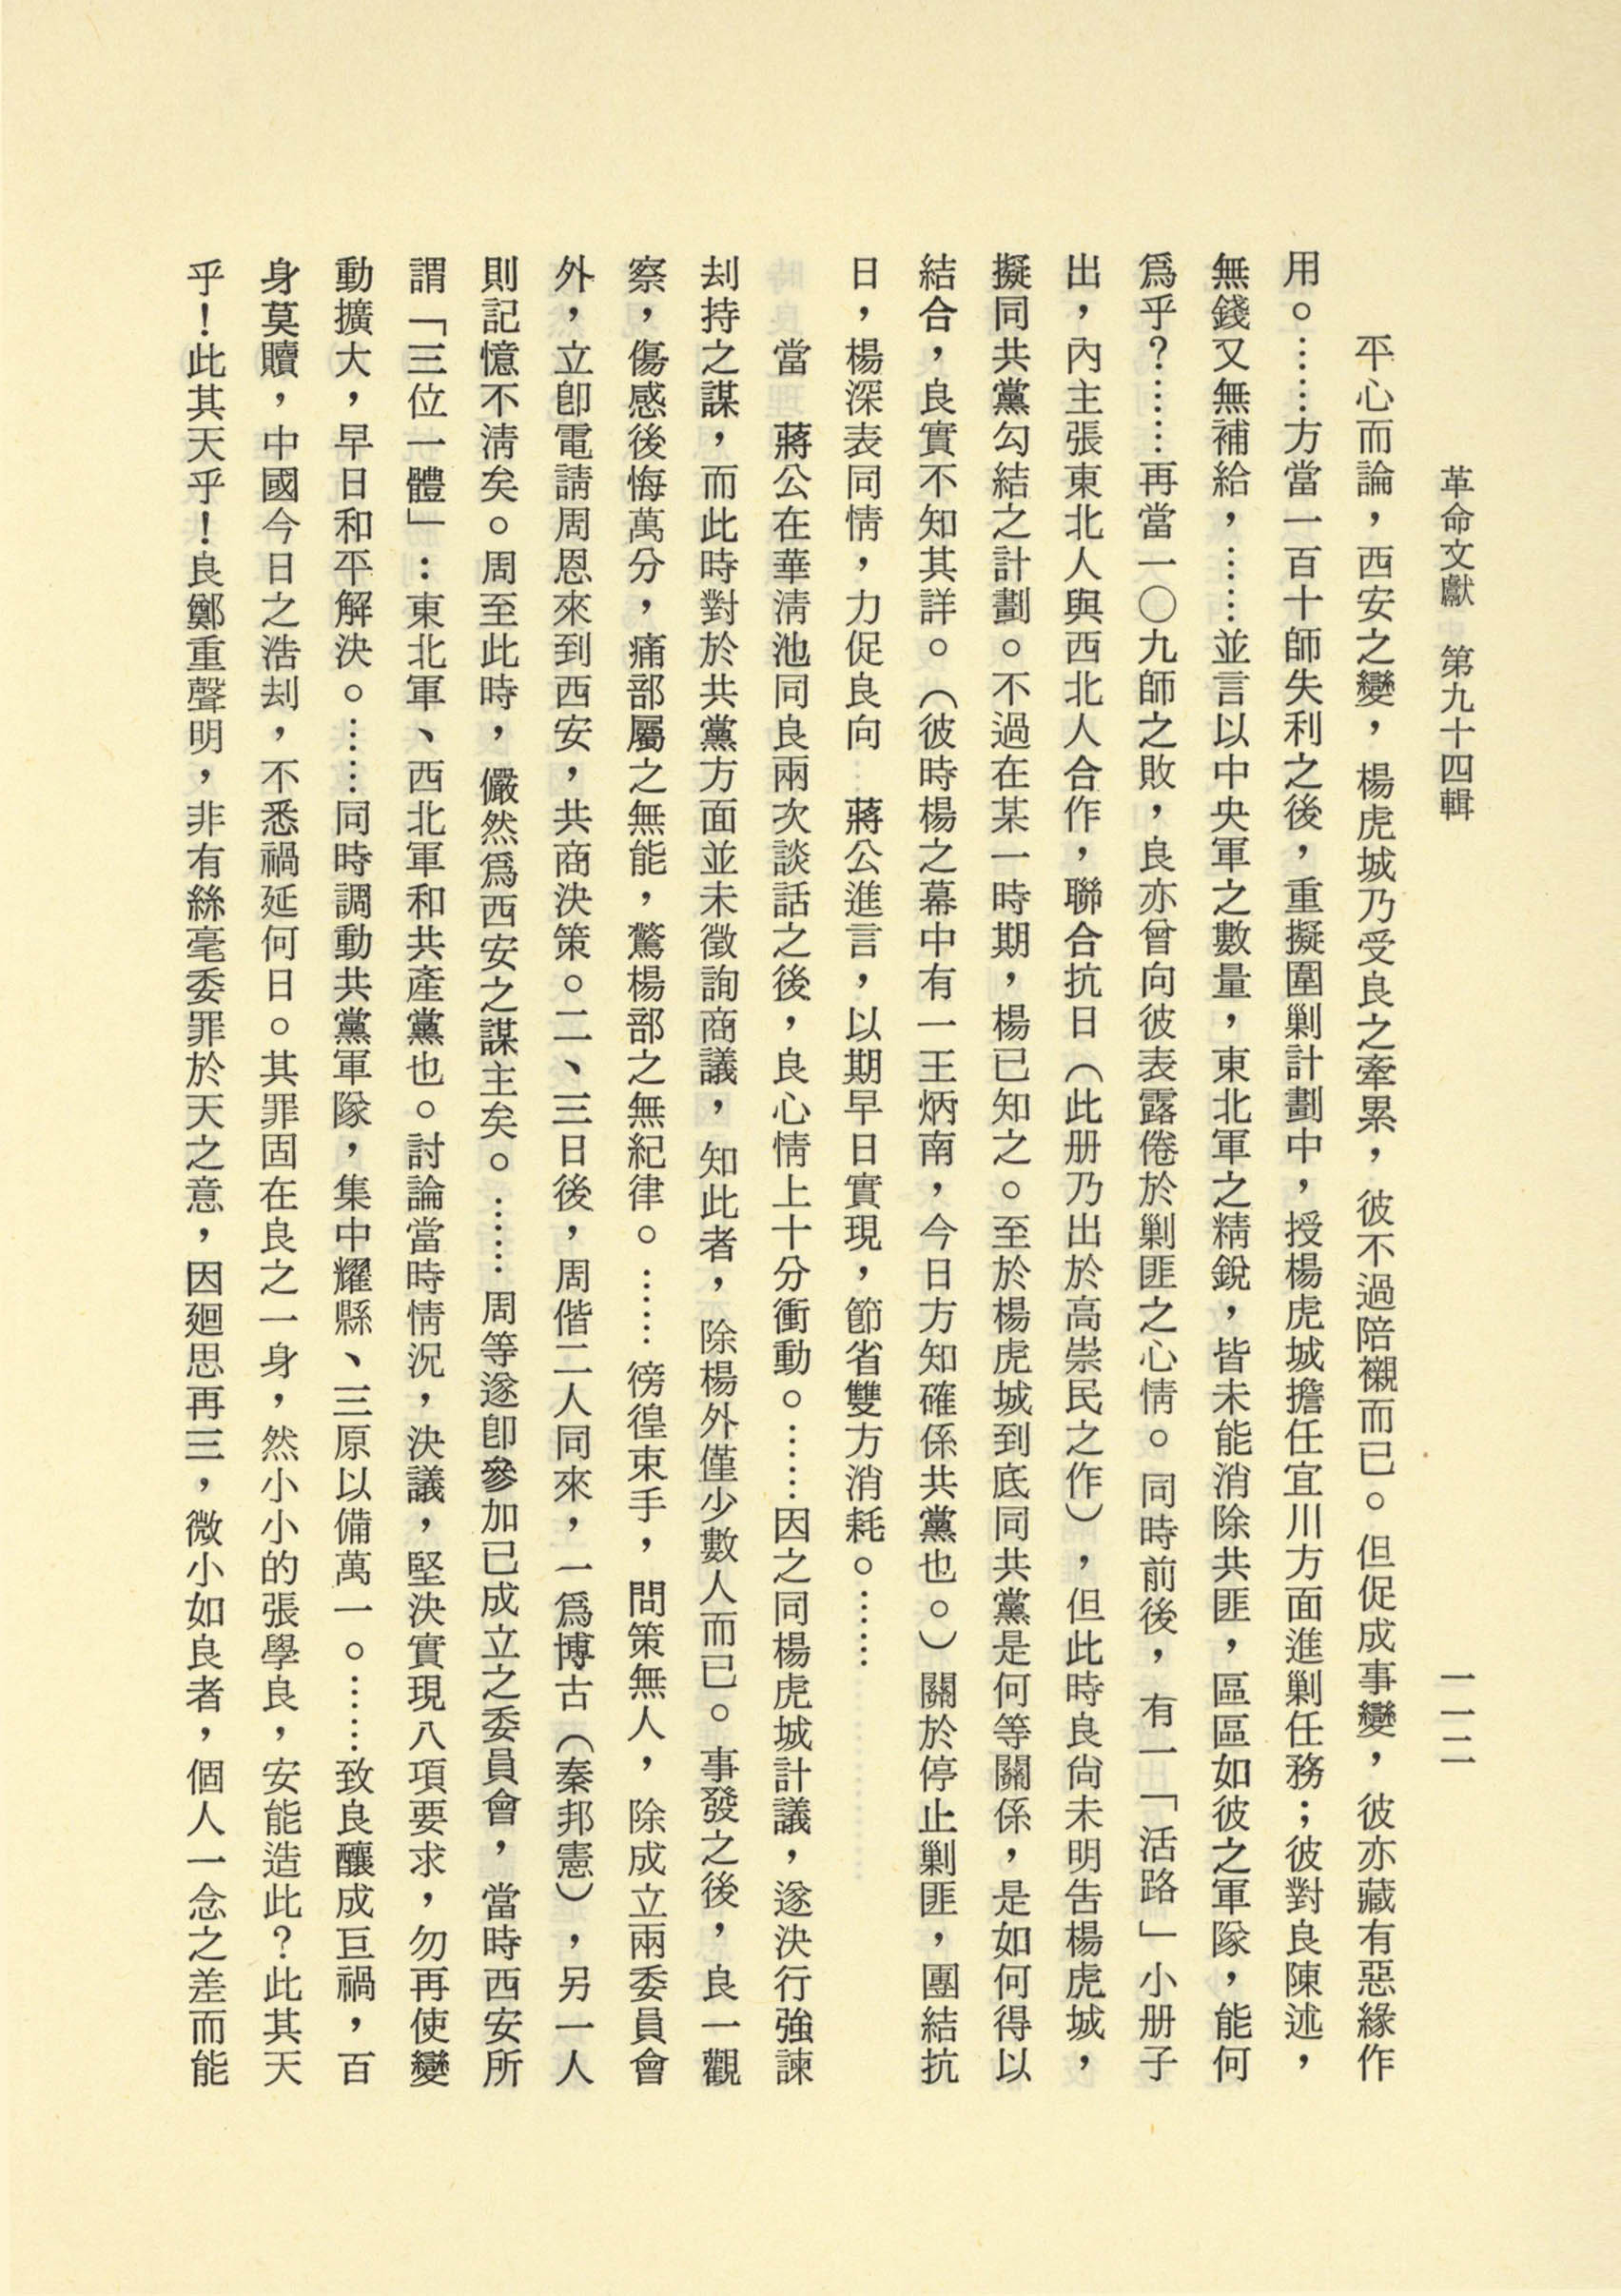 革命文獻　第九十四輯　一一二
平心而論，西安之變，楊虎城乃受良之牽累，彼不過陪襯而已。但促成事變，彼亦藏有惡緣作
用。……方當一百十師失利之後，重擬圍剿計劃中，授楊虎城擔任宜川方面進剿任務；彼對良陳述，
無錢又無補給，……並言以中央軍之數量，東北軍之精銳，皆未能消除共匪，區區如彼之軍隊，能何
爲乎？……再當一〇九師之敗，良亦曾向彼表露倦於剿匪之心情。同時前後，有一「活路」小册子
出，內主張東北人與西北人合作，聯合抗日（此册乃出於高崇民之作），但此時良尙未明告楊虎城，
擬同共黨勾結之計劃。不過在某一時期，楊已知之。至於楊虎城到底同共黨是何等關係，是如何得以
結合，良實不知其詳。（彼時楊之幕中有一王炳南，今日方知確係共黨也。）關於停止剿匪，團結抗
日，楊深表同情，力促良向　蔣公進言，以期早日實現，節省雙方消耗。……
當　蔣公在華淸池同良兩次談話之後，良心情上十分衝動。……因之同楊虎城計議，遂決行強諫
刦持之謀，而此時對於共黨方面並未徵詢商議，知此者，除楊外僅少數人而已。事發之後，良一觀
察，傷感後悔萬分，痛部屬之無能，驚楊部之無紀律。……徬徨束手，問策無人，除成立兩委員會
外，立卽電請周恩來到西安，共商決策。二、三日後，周偕二人同來，一爲博古（秦邦憲），另一人
則記憶不淸矣。周至此時，儼然爲西安之謀主矣。……周等遂卽參加已成立之委員會，當時西安所
謂「三位一體」：東北軍、西北軍和共產黨也。討論當時情況，決議，堅決實現八項要求，勿再使變
動擴大，早日和平解決。……同時調動共黨軍隊，集中耀縣、三原以備萬一。……致良釀成巨禍，百
身莫贖，中國今日之浩刦，不悉禍延何日。其罪固在良之一身，然小小的張學良，安能造此？此其天
乎！此其天乎！良鄭重聲明，非有絲毫委罪於天之意，因廻思再三，微小如良者，個人一念之差而能